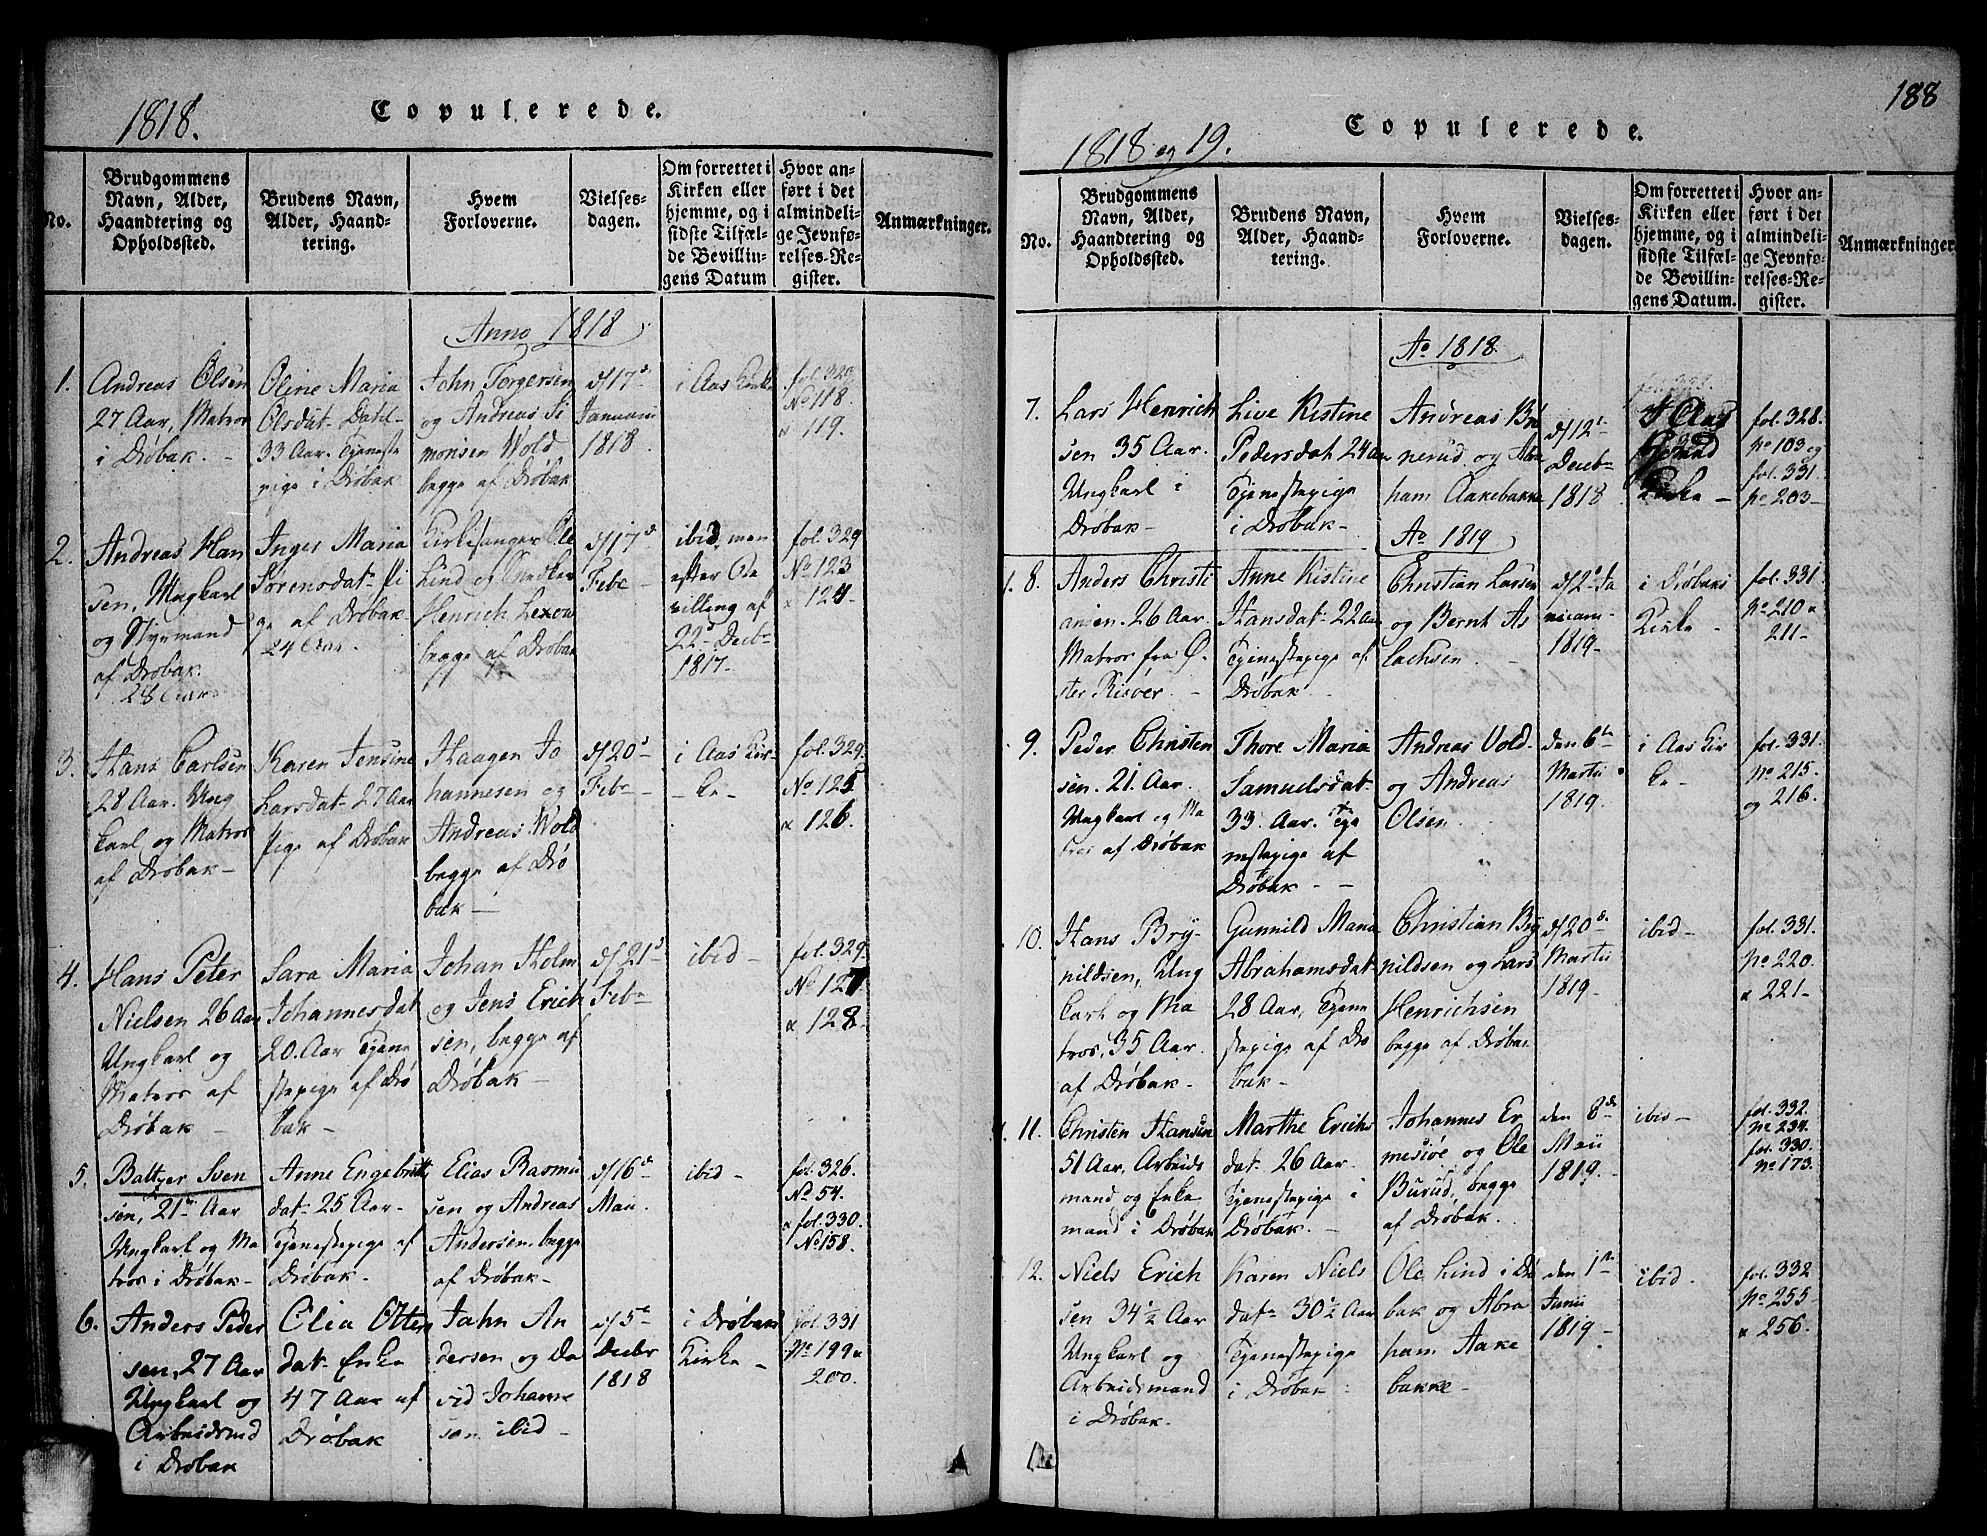 1818.
Copulerede.
No.
Brudgommens
Navn, Alder,
Haandtering og
Opholdssted.
Brudens Navn,
Alder, Haand-
tering.
Hvem
Forloverne.
Vielses-
dagen.
Om forrettet i
Kirken eller
hjemme, og i
sidste Tilfæl-
de Bevillin-
gens Datum
Hvor an-
ført i det
almindeli-
ge Jevnfø-
relses-Re-
gister.
Anmærkninger.
Anno 1818
1.
Andreas Olsen
27 Aar, Matros
i Drøbak. -
Oline Maria
Olsdat- Dahl-
33 Aar. Tjeneste
pige i Drøbak
John Torgersen
og Andreas Si
monsen Wold
begge af Drøbak
d/17d
Januarii
1818.
i Aas Kirke
fol. 329.
No 118.
x 119.
2.
Andreas Han
sen, Ungkarl
og Styrmand
af Drøbak.
28 Aar
Inger Maria
Sørensdat- Pi
ge af Drøbak
24 Aar.
Kirkesanger Ole
Lind og Snedker
Henrich Lexow
begge af Drøbak
d/17d
Febr
ibid, men
efter Be
villing af
22d Decbr
1817-
fol. 329
No 123
x 124.
3.
Hans Carlsen
28 Aar. Ung
karl og Matros
af Drøbak-
Karen Jensine
Larsdat- 27 Aar
Pige af Drøbak
Haagen Jo
hannesen og
Andreas Wold
begge af Drø
bak-
d/20d
Febr
i Aas Kir-
- ke-
fol. 329.
No 125
x 126.
4.
Hans Peter
Nielsen 26 Aar
Ungkarl og
Matros af
Drøbak-
Sara Maria
Johannesdat
20. Aar Tjene
stepige af Drø
bak-
Johan Holm
og Jens Erich
sen, begge af
Drøbak-
d/21d
Febr
ibid-
fol. 329.
No 127
x 128.
5.
Baltzer Sven
sen, 21 Aar
Ungkarl og Ma
tros i Drøbak-
Anne Engebritt
dat- 25 Aar-
Tjenestepige af
Drøbak-
Elias Rasmu
sen og Andreas
Andersen, begge
af Drøbak-
d/16d
Maii.
ibid-
fol. 326.
No. 54.
x fol. 330.
No 158.
6.
Anders Peder
sen, 27 Aar
Ungkarl og
Arbeidsmd
i Drøbak
Olia Otters
dat- Enke
47 Aar af
Drøbak
John An
dersen og Da
vid Johanne
sen ibid-
d/5e
Decbr
1818
i Drøbaks
Kirke-
fol. 331
No 199x
200.
188
1818 og 19.
Copulerede.
No.
Brudgommens
Navn, Alder,
Haandtering og
Opholdssted.
Brudens Navn,
Alder, Haand-
tering.
Hvem
Forloverne.
Vielses-
dagen.
Om forrettet i
Kirken eller
hjemme, og i
sidste Tilfæl-
de Bevillin-
gens Datum.
Hvor an-
ført i det
almindeli-
ge Jevnfø-
relses-Re-
gister.
Anmærkninger
Ao 1818.
7.
Lars Henrich
sen 35 Aar.
Ungkarl i
Drøbak-
Live Kistine
Pedersdat 24 Aar
Tjenestepige
i Drøbak-
Andreas Brø
nerud og Abra
ham Aakebakke
d/12t-
Decbr
1818
Kirke-
fol. 328.
No 103 og
fol. 331.
No 203-
Ao 1819
8.
Anders Christi
ansen. 26 Aar.
Matros fra Ø-
ster Risøer. -
Anne Kistine
Hansdat- 22 Aar
Tjenestepige af
Drøbak.
Christian Larsen
og Bernt As
lachsen.
d/2d Ja
nuarii-
1819.
i Drøbaks
Kirke-
fol. 331.
No 210 x
211-
9.
Peder Christen
sen. 21. Aar.
Ungkarl og Ma
tros af Drøbak
Thore Maria
Samuelsdat-
33. Aar. Tje
nestepige af
Drøbak--
Andreas Vold-
og Andreas
Olsen
den 6te
Martii
1819.
i Aas Kir
ke-
fol. 331.
No 215.
og 216.
10.
Hans Bry-
nildsen, Ung
karl og Ma
tros, 35 Aar.
af Drøbak-
Gunnild Maria
Abrahamsdat-
28 Aar, Tjene
stepige af Drø
bak-
Christian Bry
nildsen og Lars
Henrichsen
begge af Drøbak
d/20d.
Martii
1819-
ibid-
fol. 331.
No 220.
x 221-
11.
Christen Hansen
51 Aar, Arbeids
mand og Enke
mand i Drøbak
Marthe Erichs
dat- 26 Aar.
Tjenestepige i
Drøbak. -
Johannes Er
mesiøe og Ole
Burud, begge
af Drøbak.
den 8de
Maii
1819.
ibid-
fol. 332.
No 234.
fol. 330.
No 173.
12.
Niels Erich
sen 34 1/2 Aar
Ungkarl og
Arbeidsmand
i Drøbak.
Karen Niels
dat- 30 1/2 Aar
Tjenestepige
i Drøbak-
Ole Lind i Drø
bak og Abra
ham Aake
bakke-
den 1ste
Junii
1819-
ibid.
fol. 332
No 255-
x 256.